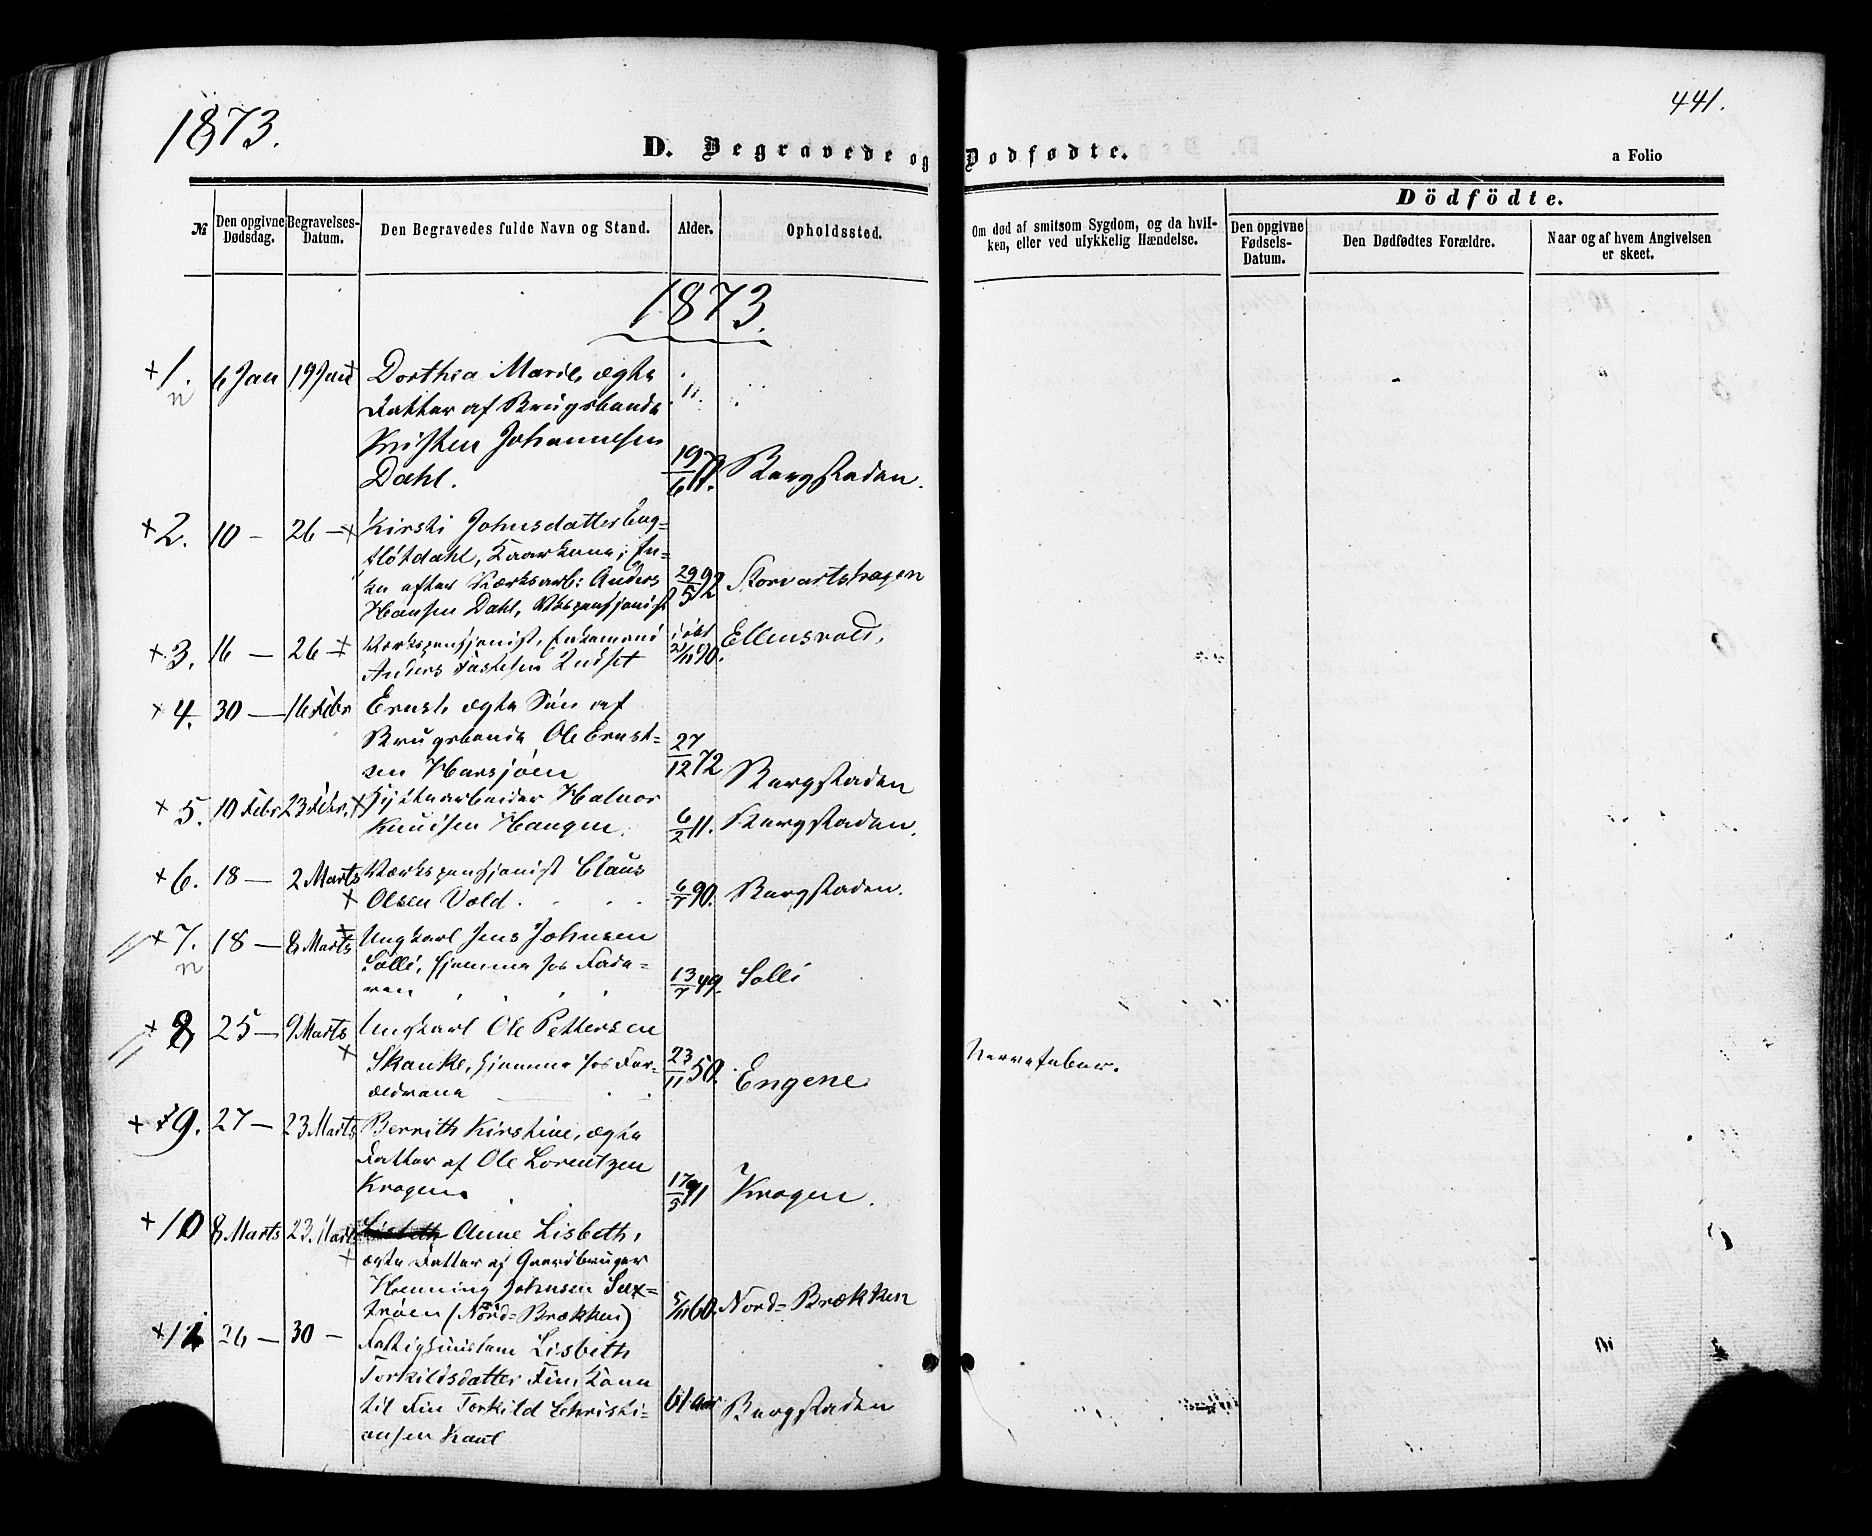 1873.
441.
D. Begravede og Dødfødte.
a Folio
Dödfödte.
№
Den opgivne Dødsdag.
Begravelses-Datum.
Den Begravedes fulde Navn og Stand.
Alder.
Opholdssted.
Om død af smitsom Sygdom, og da hvilken, eller ved ulykkelig Hændelse.
Den opgivne Fødsels-Datum.
Den Dødfødtes Forældre.
Naar og af hvem Angivelsen er skeet.
1873.
+1. 6 Jan 19 Jan Dorthea Marie, ægte
n Datter af Brugsbonde
Kristen Johannesen
Dahl. 19/6 71. Bergstaden.
+2. 10 – 26 – Kirsti Johnsdatter
Dahl, Kaarkone, En-
ke efter Værksarb: Anders
Hansen Dahl, 29/5 92 Storvartshagen
+3. 16 – 26 – Værkspensjonist, Enkemand
Anders 90. Ellensvold.
+4. 30 – 16 Febr Ernst, ægte Søn af
Brugsbonde Ole Ernst-
sen Harsjøen 27/12 72 Bergstaden
+5. 10 Febr 23 Febr. Hyttearbeider Halvor
Knudsen Haugen. 6/2 11. Bergstaden.
+6. 18 – 2 Marts Værkspensjonist Claus
Olsen Vold. 6/7 90. Bergstaden.
+7. 18 – 8 Marts Ungkarl Jens Johnsen
n Solli, hjemme hos Fade-
ren 13/7 49. Solli
+8 25 – 9 Marts Ungkarl Ole Pettersen
Skanke, hjemme hos For-
ældrene 23/11 50. Engene Nervefeber.
+9. 27 – 23 Marts Berrith Kirstine, ægte
Datter af Ole Lorentzen
Krogen. 71 Krogen.
+10 8 Marts 23. Marts Lisbeth Anne Lisbeth,
ægte Datter af Gaardbruger
Henning Johnsen Sæx-
trøen (Nord-Brækken) 5/11 60. Nord-Brækken
+11 26 – 30 – Fattiglem Lisbeth
Torkildsdatter
til Fin Torkild Christi-
ansen 61 aar Bergstaden